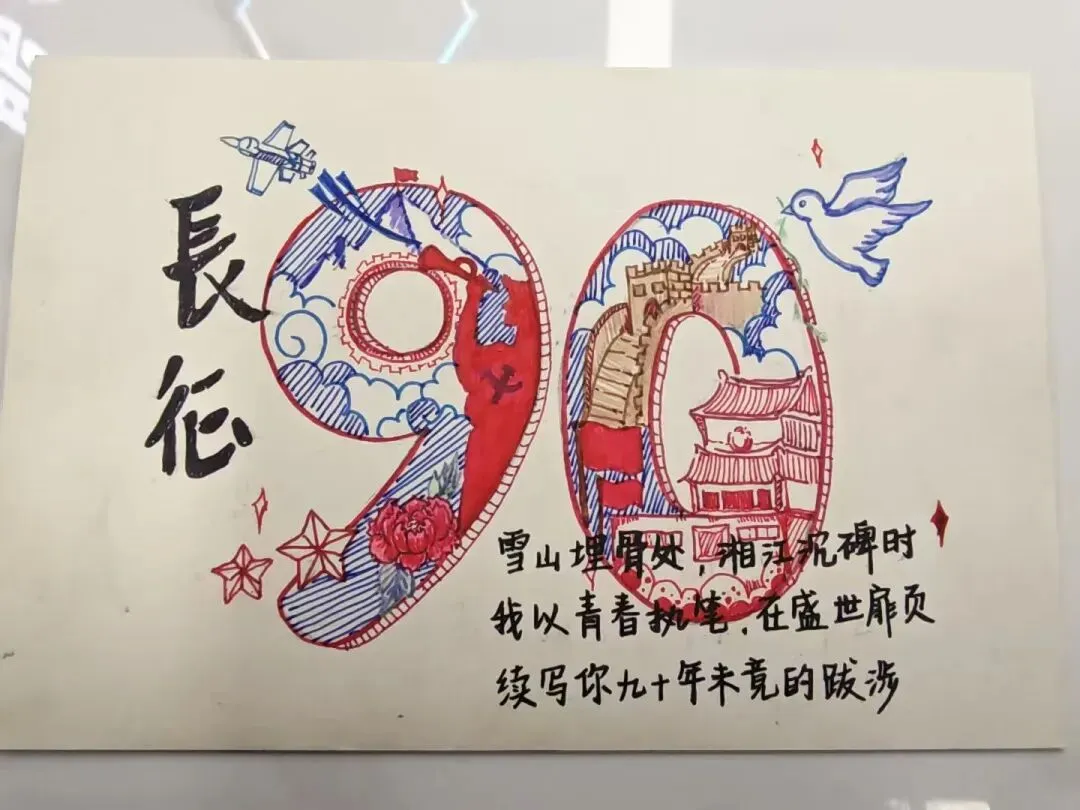 長征
90
雪山埋骨处，湘江沉碑时
我以青春执笔，在盛世扉页
续写你九十年未竟的跋涉